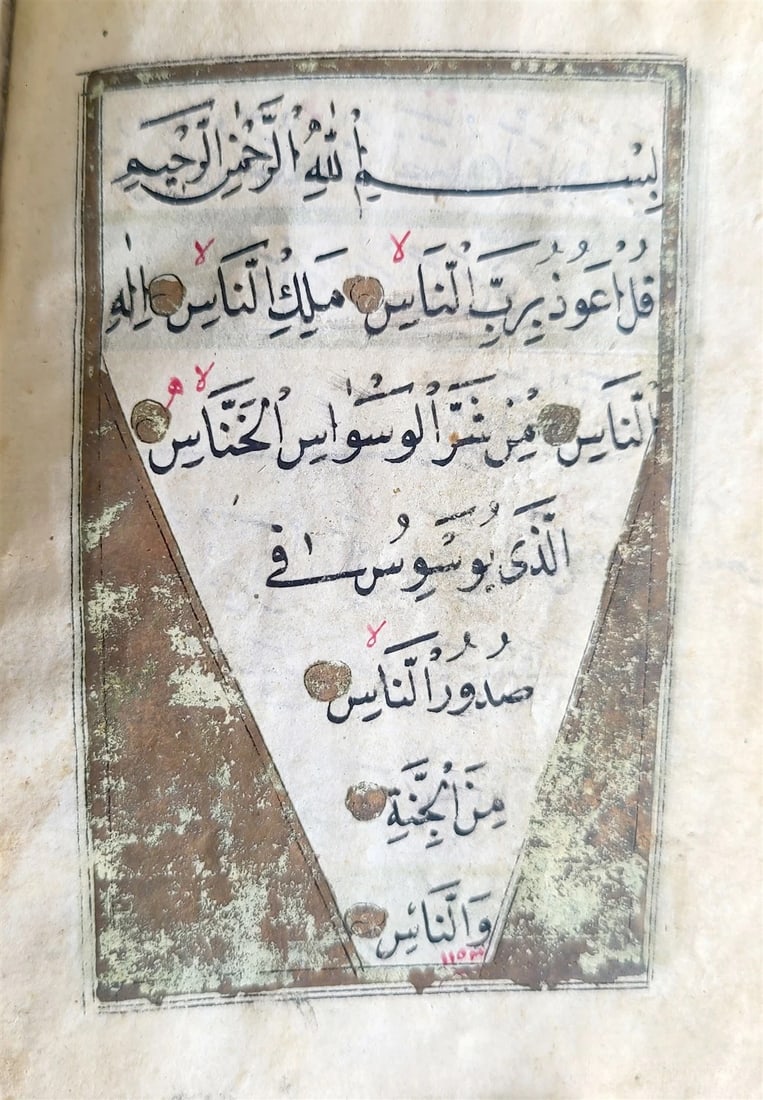 بِسْمِ اللّٰهِ الرَّحْمٰنِ الرَّحِيمِ
قُلْ اَعُوذُ بِرَبِّ النَّاسِ لا مَلِكِ النَّاسِ لا اِلٰهِ
النَّاسِ مِنْ شَرِّ الْوَسْوَاسِ الْخَنَّاسِ لا ه
الَّذِى يُوَسْوِسُ فِى
صُدُورِ النَّاسِ لا
مِنَ الْجِنَّةِ
وَالنَّاسِ
١١٥٣